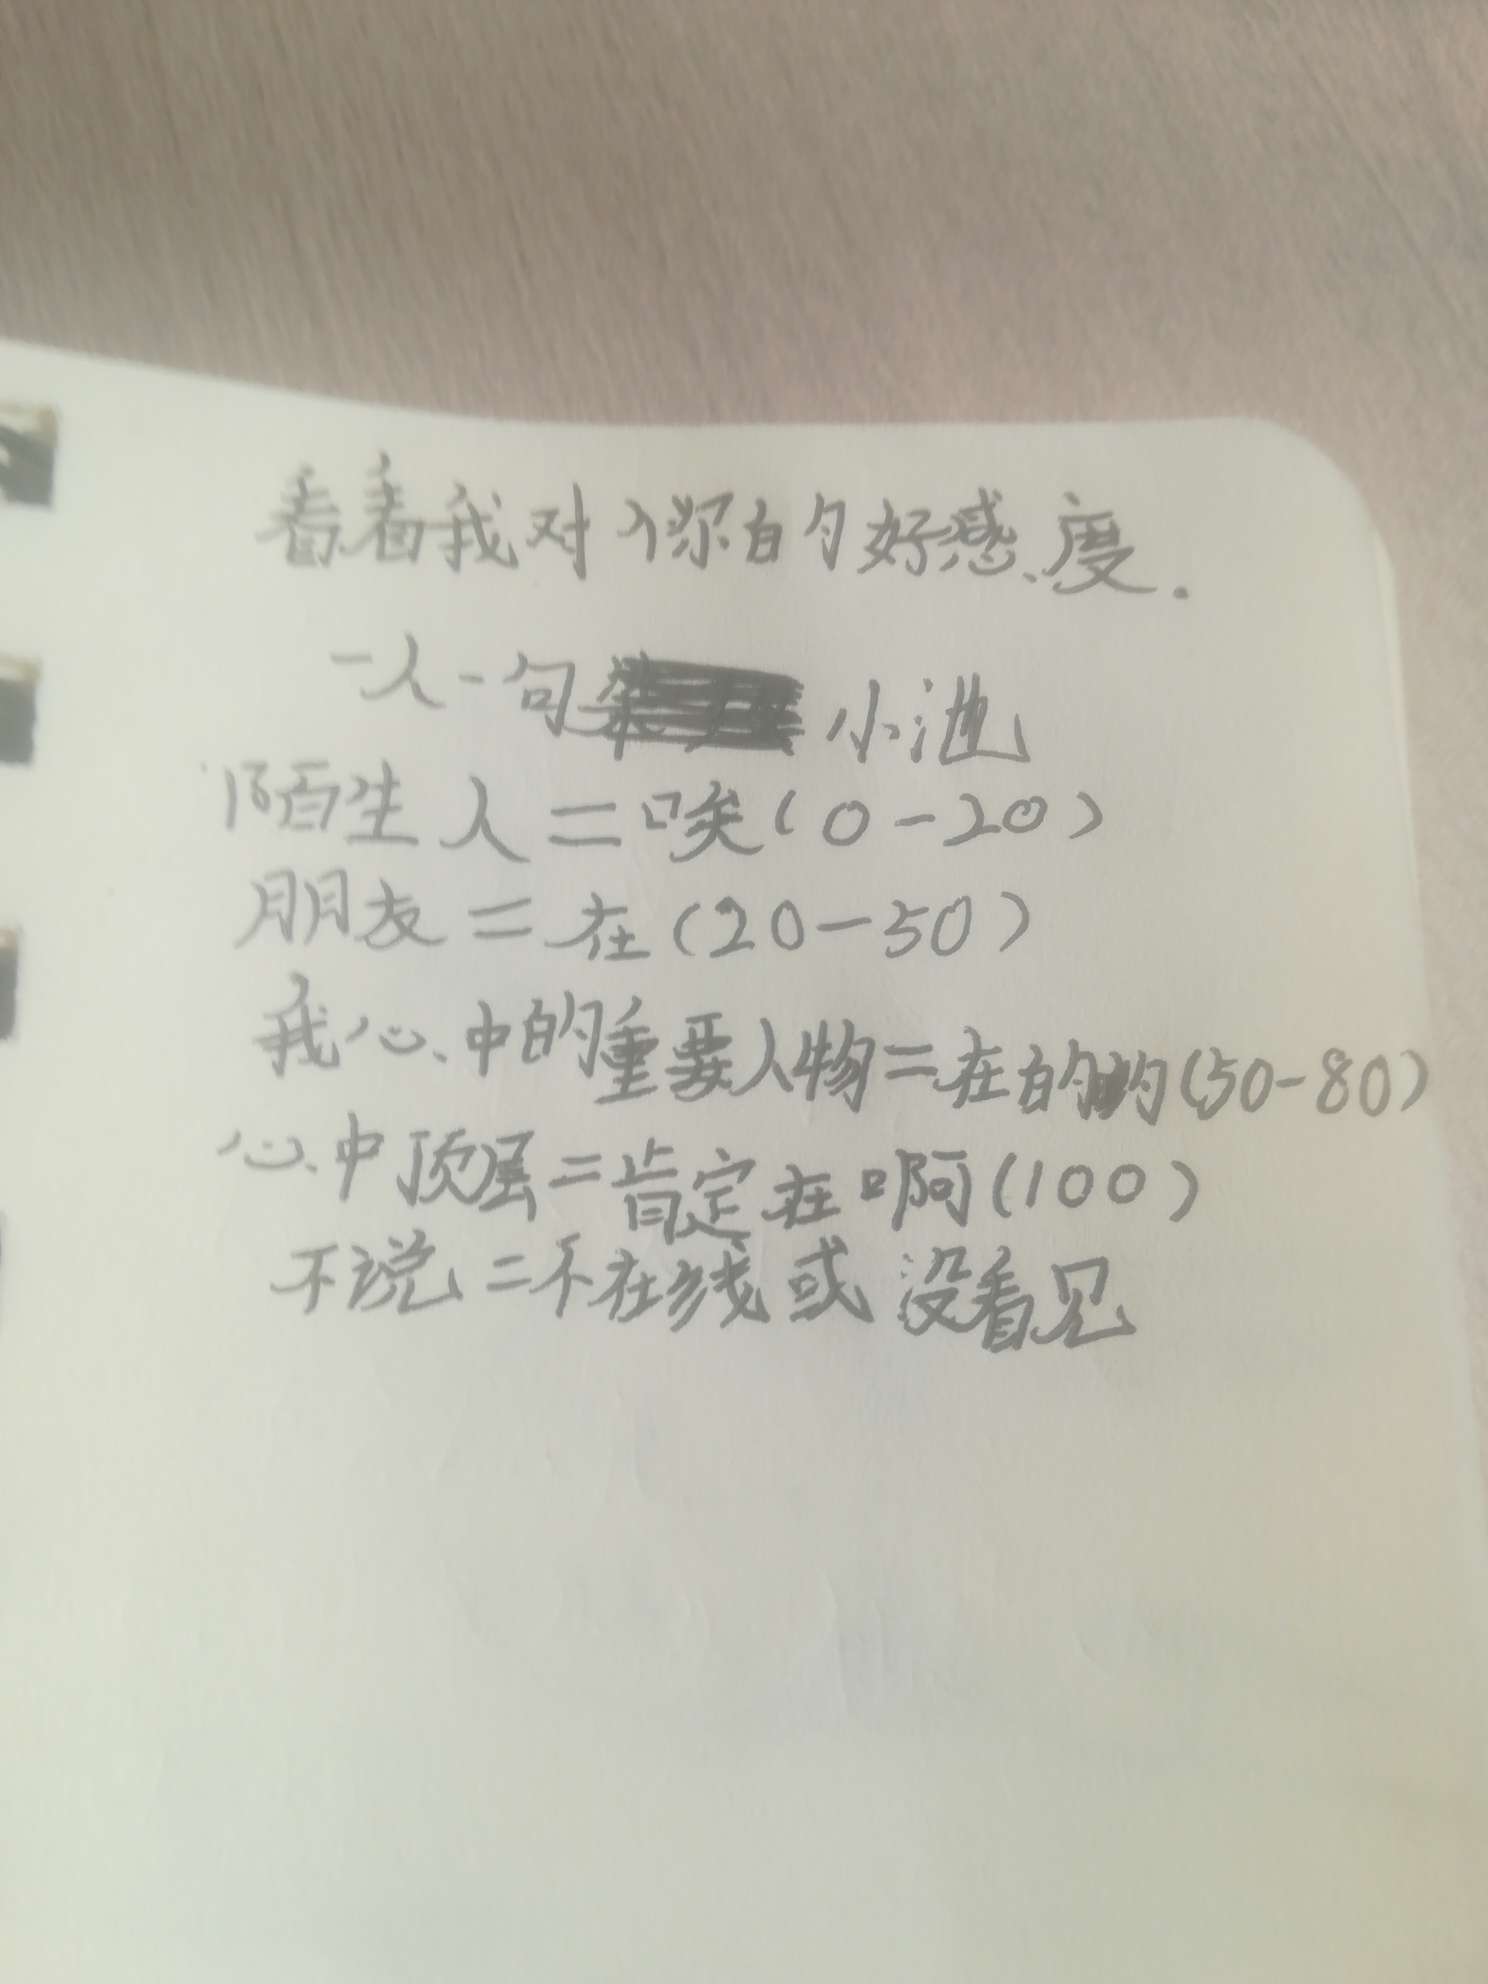 看看我对你的好感度.
一人一句 小池
陌生人=唉(0-20)
朋友=在(20-50)
我心中的重要人物=在的的(50-80)
心中顶层=肯定在啊(100)
不说=不在线或没看见